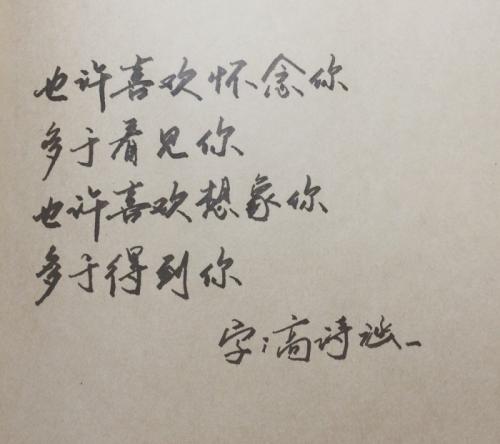 也许喜欢怀念你
多于看见你
也许喜欢想象你
多于得到你
字；高诗涵_